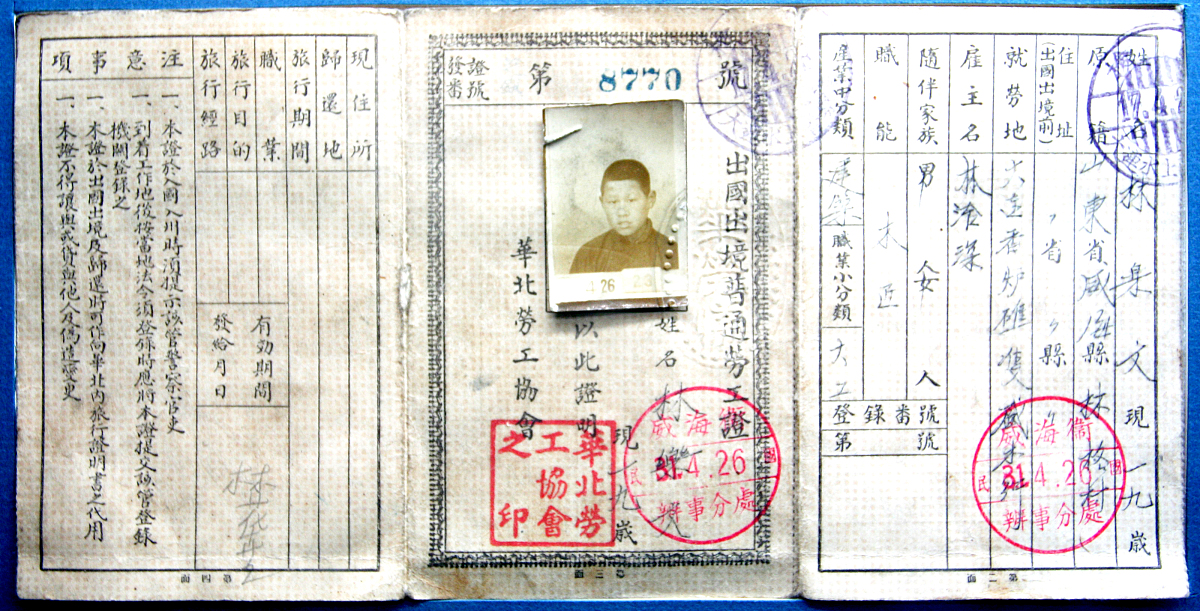 姓名 林 文 現一九歲
原籍 山東省威海縣林格村
住址(出國出境前) 〃省〃縣
就勞地 大连香炉礁
雇主名 林治深
隨伴家族 男 女 人
職能 木匠
產業中分類 建築 職業小分類 大工
登錄番號 第 號
威海衛
民國
31.4.26
辦事分處
17.4.2
第二面
發證番號 第 8770 號
出國出境普通勞工證
姓名 林 現一九歲
以此證明
華北勞工協會
26
威海衛
民國
31.4.26
辦事分處
華北勞工協會之印
第三面
現住所
歸還地
旅行期間
職業
旅行目的
旅行經路
有効期間
發給月日
注意事項
一、本證於入國入川時須提示該管警察官吏
一、到着工作地後按當地法令須登錄時應將本證提交該管登錄
機關登錄之
一、本證於出國出境及歸還時可作向華北內旅行證明書之代用
一、本證不得讓與或貸與他人及偽造變更
林
第四面